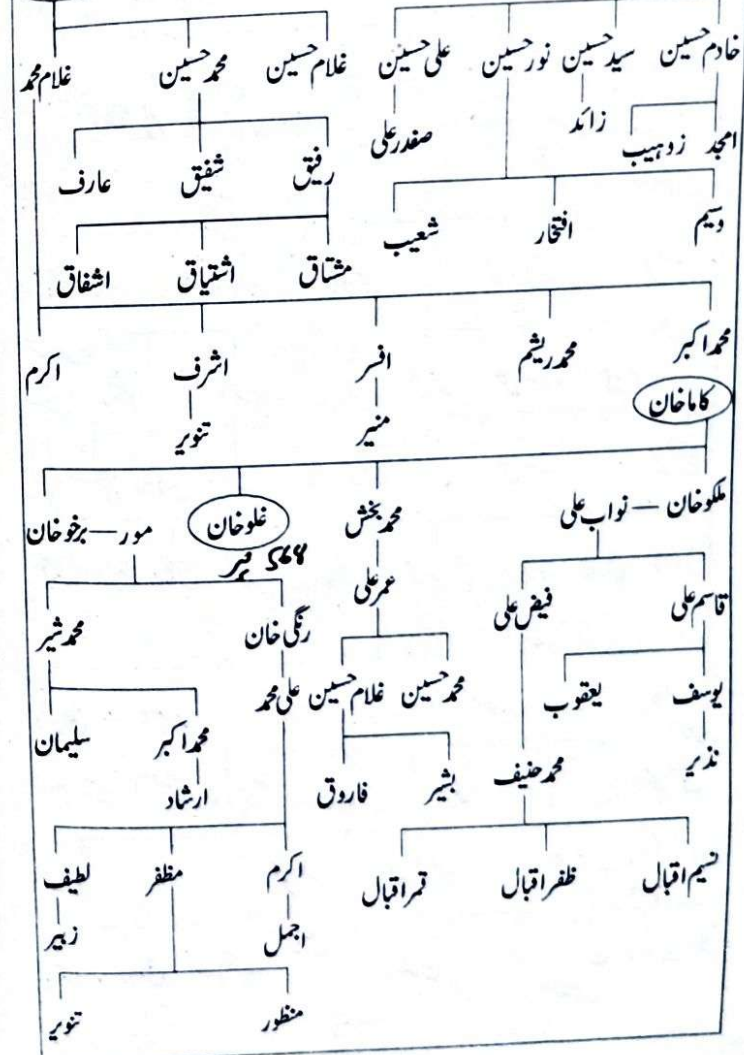 خادم حسین سید حسین نور حسین علی حسین غلام حسین محمد حسین غلام محمد
امجد زوہیب زائد صفدر علی
رفیق شفیق عارف
وسیم افتخار شعیب
مشتاق اشتیاق اشفاق
محمد اکبر محمد ریشم افسر اشرف اکرم
کاماخان
منیر تنویر
ملکوخان — نواب علی محمد بخش غلوخان مور — برخوخان
قاسم علی فیض علی عمر علی
رنگی خان محمد شیر
یوسف یعقوب محمد حسین غلام حسین علی محمد
نذیر محمد حنیف بشیر فاروق محمد اکبر سلیمان
ارشاد
نسیم اقبال ظفر اقبال قمر اقبال اکرم مظفر لطیف
اجمل زبیر
منظور تنویر